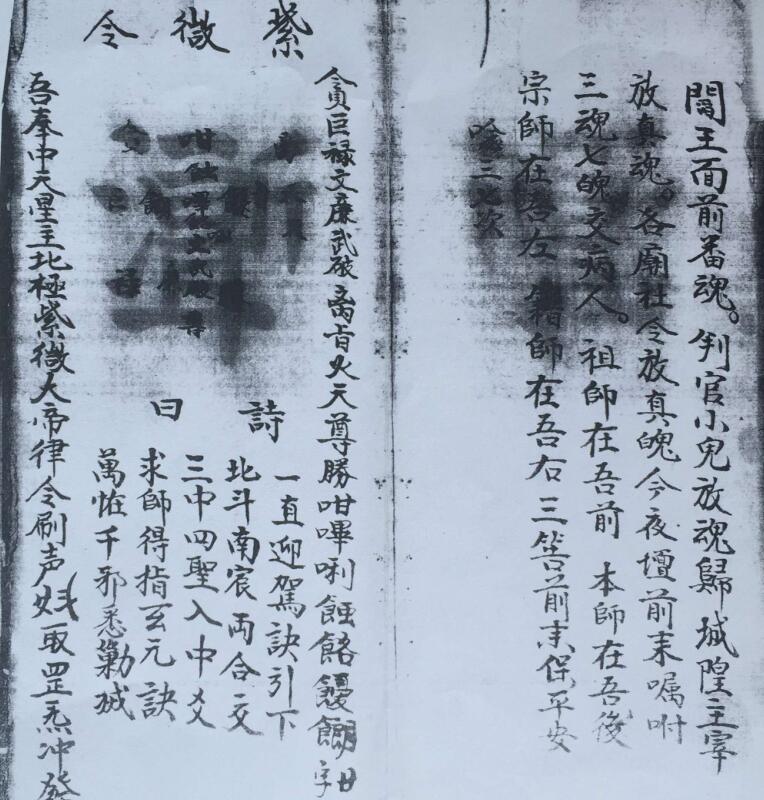 閻王面前番魂。判官小鬼放魂歸城隍主宰
放真魂。各廟社令放真魄今夜壇前来嘱咐
三魂七魄交病人。祖師在吾前 本師在吾後
宗師在吾左 籙師在吾右 三筶前来保平安
唸三七次
紫微令
貪巨禄文廉武破 天尊勝咁嗶唎蝕
詩曰
一直迎駕訣引下
北斗南宸両合交
三中四聖入中爻
求師得指玄元訣
萬怪千邪悉勦滅
吾奉中天星主北極紫微大帝律令刷声 取罡炁冲發